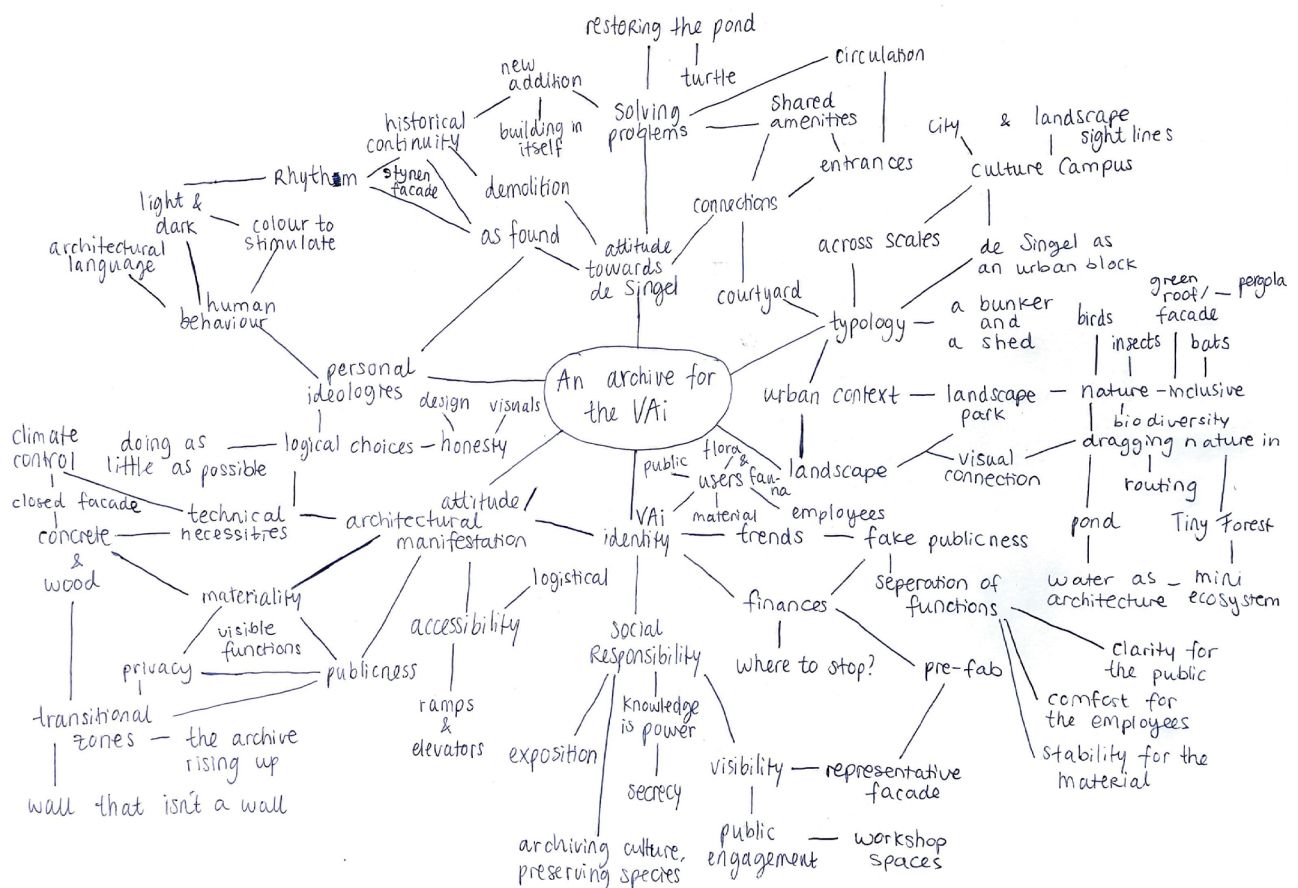 restoring the pond
turtle
circulation
new
addition
building in
itself
solving
problems
shared
amenities
entrances
city & landscape
sight lines
culture campus
historical
continuity
stynen
facade
demolition
Rhythm
light &
dark
colour to
stimulate
architectural
language
human
behaviour
as found
attitude
towards
de Singel
connections
courtyard
across scales
de Singel as
an urban block
typology
a bunker
and
a shed
green
roof/
facade
pergola
birds
insects
bats
personal
ideologies
An archive for
the VAi
urban context
landscape
park
nature-inclusive
biodiversity
dragging nature in
design
visuals
honesty
logical choices
doing as
little as possible
climate
control
closed facade
concrete
&
wood
technical
necessities
attitude/
architectural
manifestation
VAi
identity
public
flora
&
fauna
users
material
employees
landscape
visual
connection
routing
pond
Tiny Forest
water as
architecture
mini
ecosystem
trends
fake publicness
seperation of
functions
finances
where to stop?
pre-fab
clarity for
the public
comfort for
the employees
stability for the
material
materiality
visible
functions
privacy
publicness
transitional
zones
the archive
rising up
wall that isn't a wall
logistical
accessibility
ramps
&
elevators
social
Responsibility
exposition
knowledge
is power
secrecy
visibility
representative
facade
public
engagement
workshop
spaces
archiving culture,
preserving species